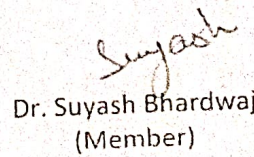 Suyash
Dr. Suyash Bhardwaj
(Member)